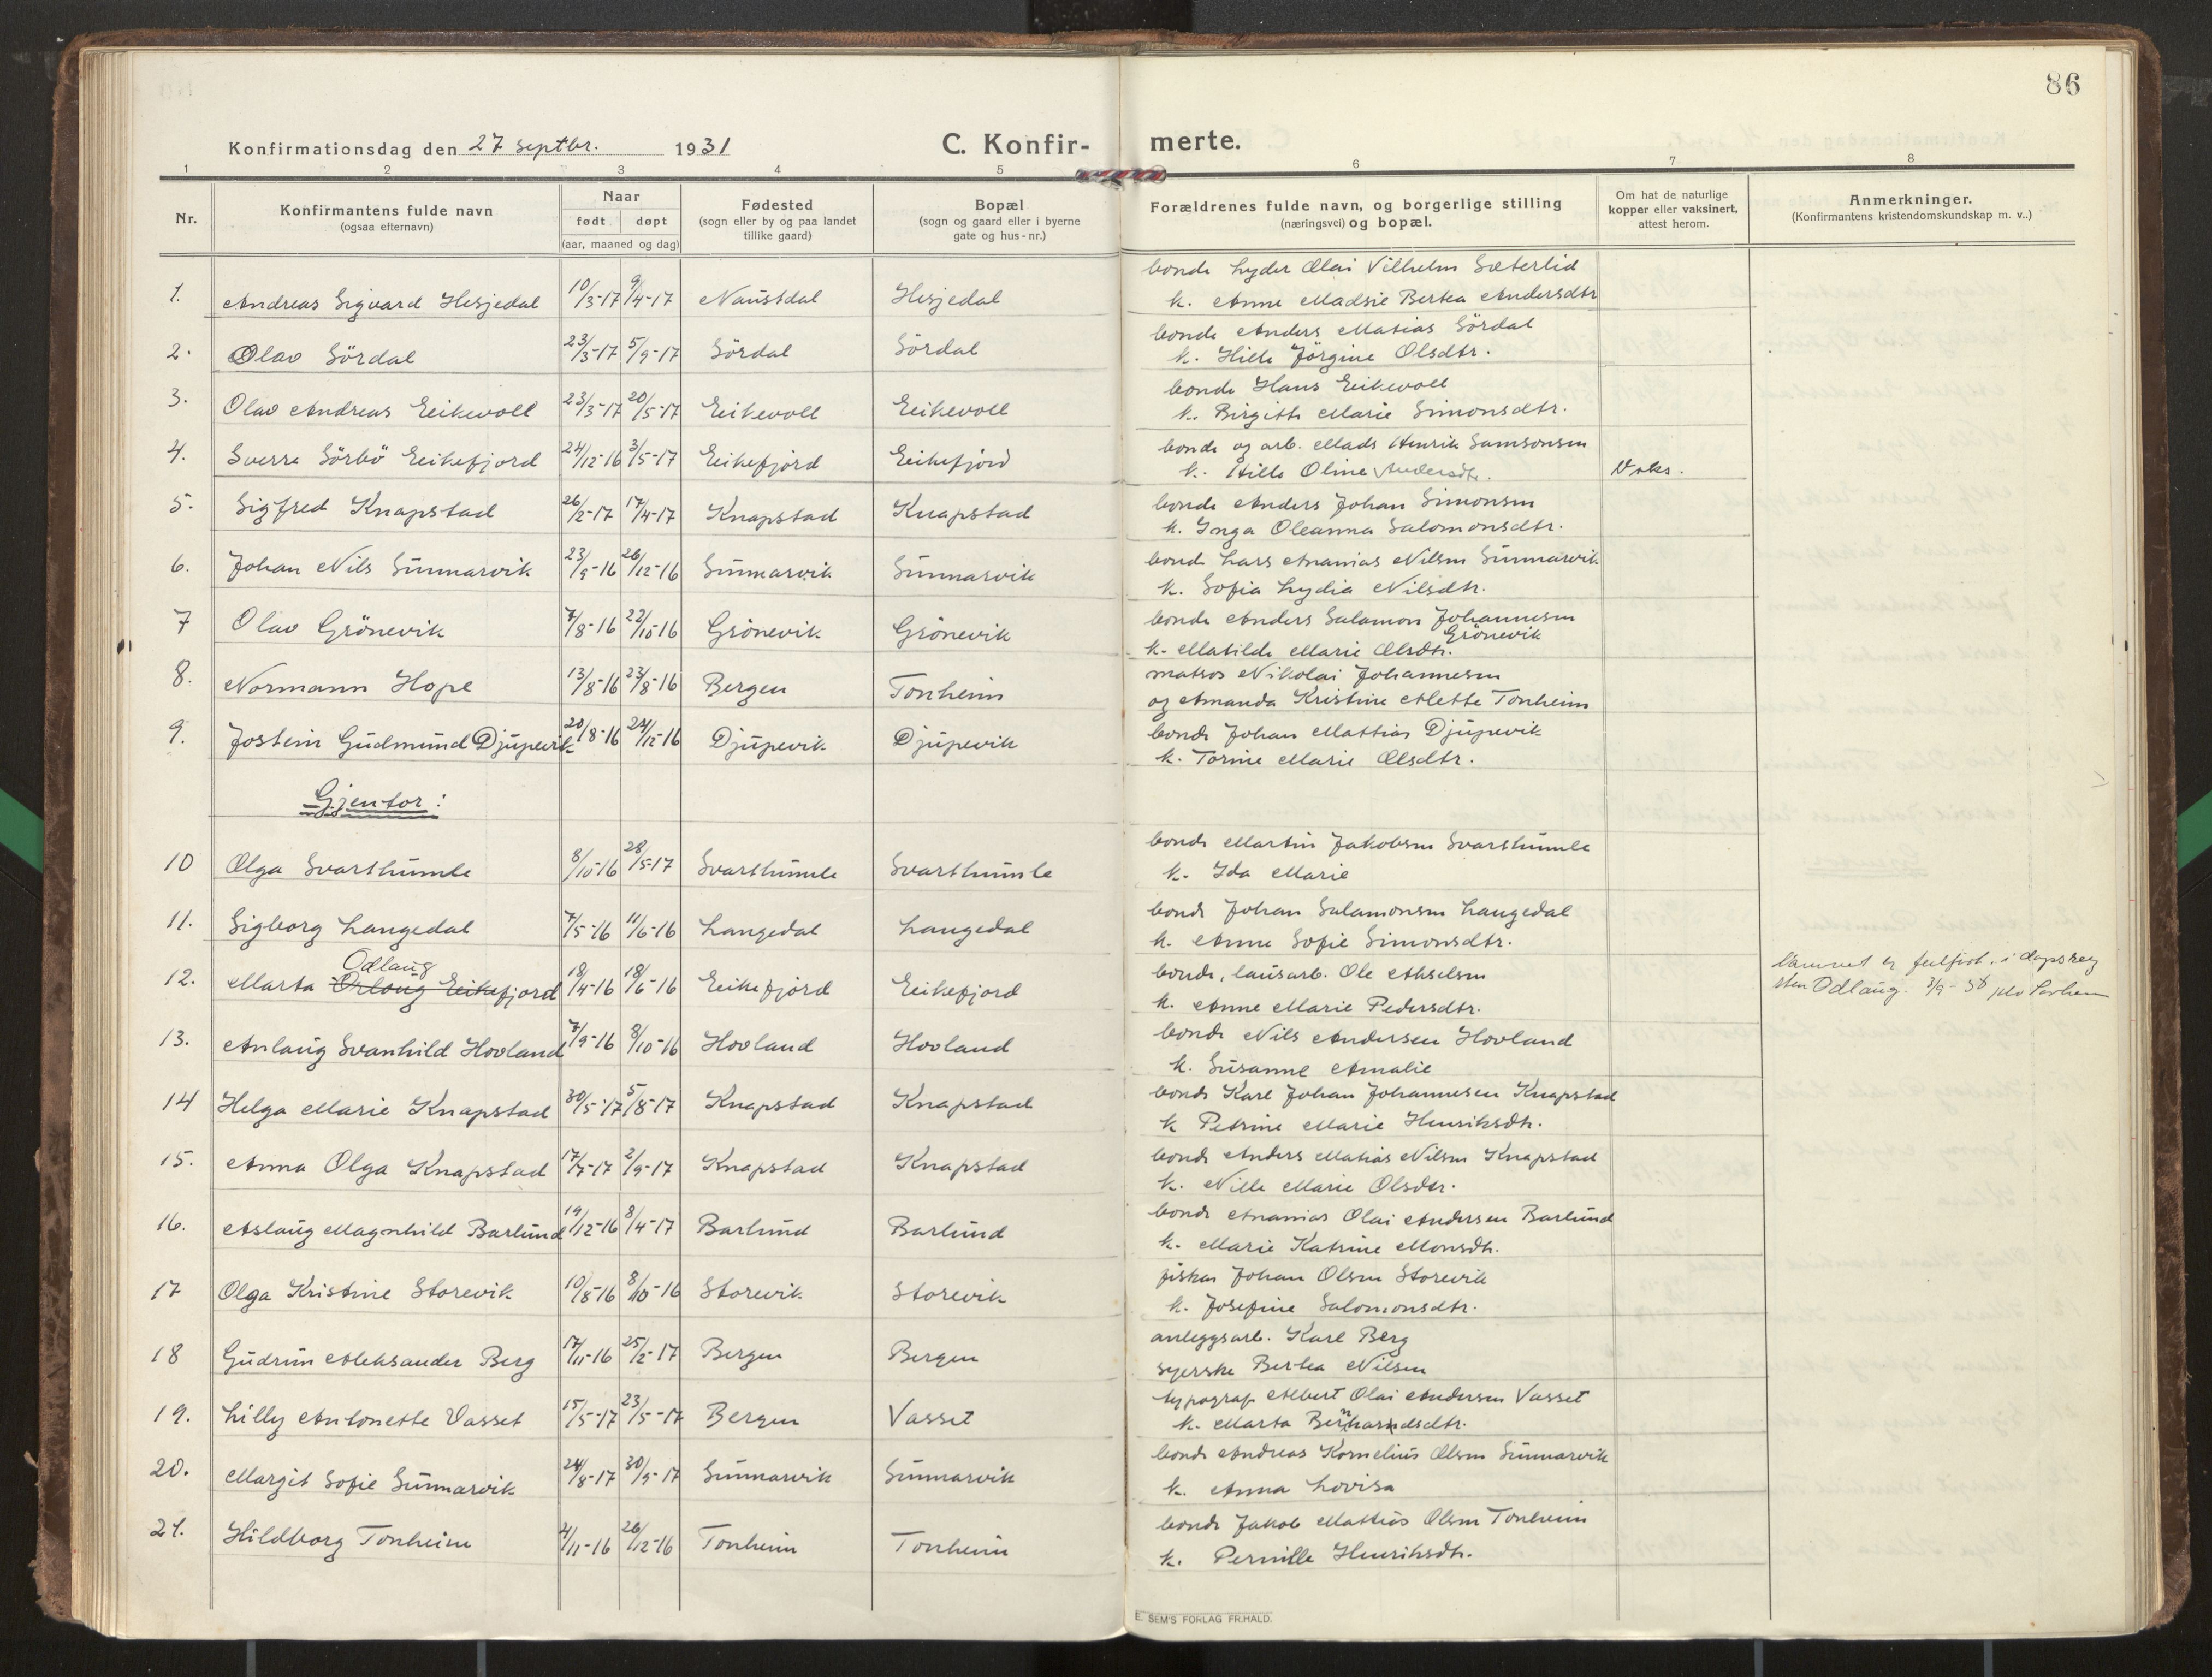 86
Konfirmationsdag den 27 septbr. 1931 C. Konfir- merte.
1 2 3 4 5 6 7 8
Nr. Konfirmantens fulde navn (ogsaa efternavn) Naar født døpt (aar, maaned og dag) Fødested (sogn eller by og paa landet tillike gaard) Bopæl (sogn og gaard eller i byerne gate og hus-nr.) Forældrenes fulde navn, og borgerlige stilling (næringsvei) og bopæl. Om hat de naturlige kopper eller vaksinert, attest herom. Anmerkninger. (Konfirmantens kristendomskundskap m. v..)
bonde Lyder Olai Vilhelm Sæterlid
1. Andreas Sigvard Hesjedal 10/3-17 9/4-17 Naustdal Hesjedal k. Anne Madsie Bertea Andersdtr
bonde Anders Matias Sördal
2. Olav Sördal 23/3-17 5/9-17 Sördal Sördal k. Hille Jörgine Olsdtr.
bonde Hans Eikevoll
3. Olav Andreas Eikevoll 23/3-17 20/5-17 Eikevoll Eikevoll k. Birgitte Marie Simonsdtr.
bonde og arb. Mads Henrik Samsonsen
4. Sverre Sörbö Eikefjord 24/12-16 3/5-17 Eikefjord Eikefjord k. Hille Oline Andersdtr. Vaks.
bonde Anders Johan Simonsen
5. Sigfred Knapstad 26/2-17 17/4-17 Knapstad Knapstad k. Inga Oleanna Salomonsdtr.
bonde Lars Ananias Nilsen Sunnarvik
6. Johan Nils Sunnarvik 23/9-16 26/12-16 Sunnarvik Sunnarvik k. Sofia Lydia Nilsdtr.
bonde Anders Salamon Johannesen
Grönevik
7 Olav Grönevik 7/8-16 22/10-16 Grönevik Grönevik k. Matilde Marie Olsdtr.
matros Nikolai Johannesen
8. Normann Hope 13/8-16 23/8-16 Bergen Tonheim og Amanda Kristine Alette Tonheim
bonde Johan Mattias Djupevik
9. Jostein Gudmund Djupevik 20/8-16 24/12-16 Djupevik Djupevik k. Torine Marie Olsdtr.
Gjentor:
bonde Martin Jakobsen Svarthumle
10 Olga Svarthumle 8/10-16 28/5-17 Svarthumle Svarthumle k. Ida Marie
bonde Johan Salamonsen Langedal
11. Sigborg Langedal 7/5-16 11/6-16 Langedal Langedal k. Anne Sofie Simonsdtr.
Odlaug
bonde, lausarb. Ole Akselsen
12. Marta Orlaug Eikefjord 18/4-16 18/6-16 Eikefjord Eikefjord k. Anne Marie Pedersdtr. i dapsreg
Odlaug.
bonde Nils Andersen Hovland
13. Anlaug Svanhild Hovland 7/9-16 8/10-16 Hovland Hovland k. Susanne Amalie
bonde Karl Johan Johannesen Knapstad
14 Helga Marie Knapstad 30/5-17 5/8-17 Knapstad Knapstad k Petrine Marie Henriksdtr.
bonde Anders Matias Nilsen Knapstad
15. Anna Olga Knapstad 17/7-17 2/9-17 Knapstad Knapstad k. Nille Marie Olsdtr.
bonde Ananias Olai Andersen Barlund
16. Aslaug Magnhild Barlund 19/12-16 8/4-17 Barlund Barlund k. Marie Katrine Monsdtr.
fiskar Johan Olsen Storevik
17 Olga Kristine Storevik 10/8-16 8/10-16 Storevik Storevik k. Josefine Salomonsdtr.
anleggsarb. Karl Berg
18 Gudrun Aleksander Berg 17/11-16 25/2-17 Bergen Bergen syerske Bertea Nilsen
typograf Albert Olai Andersen Vasset
19. Lilly Antonette Vasset 15/5-17 23/5-17 Bergen Vasset k. Marta Bernhardsdtr.
bonde Andreas Kornelius Olsen Sunnarvik
20. Margit Sofie Sunnarvik 24/8-17 30/9-17 Sunnarvik Sunnarvik k. Anna Lovisa
bonde Jakob Mattias Olsen Tonheim
21. Hildborg Tonheim 4/11-16 26/12-16 Tonheim Tonheim k. Pernille Henriksdtr.
E. SEM'S FORLAG FR.HALD.